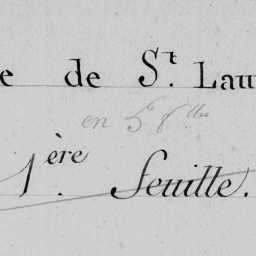 e de S.t Lau
en 5 flles
1.ère feuille.